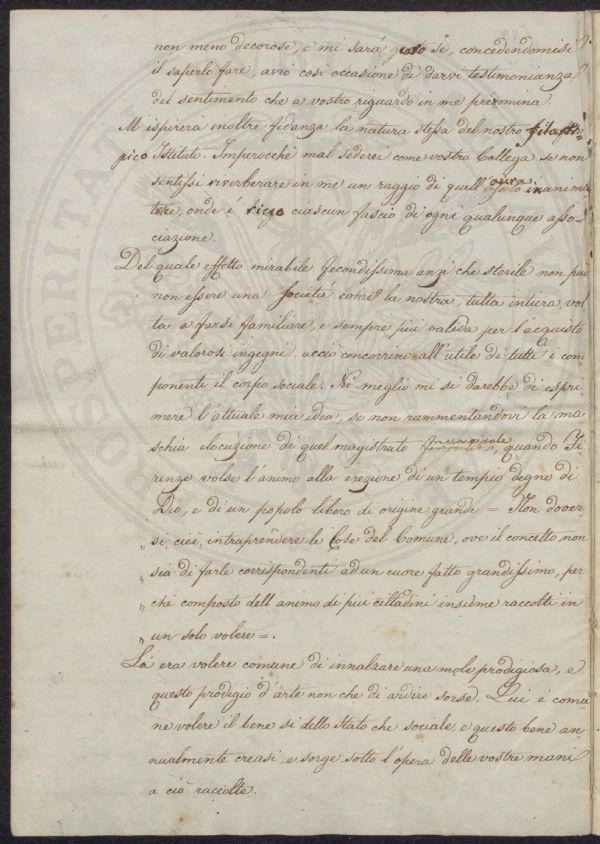 non meno decorose, e mi sará grato se, concedendomisi
il saperlo fare, avrò così occasione di darvi testimonianza
del sentimento che a vostro riguardo in me predomina.
M ispirerà inoltre fidanza la natura stessa del nostro filantro-
pico Istituto. Imperocchè mal sederei come vostro Collega se non
sentissi riverberare in me un raggio di quell' inanimi
tore, onde é ciascun fascio di ogni qualunque asso-
ciazione.
Del quale effetto mirabile fecondissima anzi che sterile non può
non essere una Societá com'è la nostra, tutta intiera vol
ta a farsi familiare, e sempre piu valida per l'acquisto
di valorosi ingegni acciò concorrino all'utile di tutti i com
ponenti il corpo sociale. Né meglio mi si darebbe di espri
mere l'attuale mia idea, se non rammentandovi la ma
schia elocuzione di quel magistrato, quando Fi
renze volse l'animo alla erezione di un tempio degno di
Dio, e di un popolo libero di origine grande = Non dover
„ si, cioè, intraprendere le Cose del Comune, ove il concetto non
„ sia di farle corrispondenti ad un cuore fatto grandissimo, per
„ chè composto dell animo di piu cittadini insieme raccolti in
„ un solo volere =.
Là era volere comune di innalzare una mole prodigiosa, e
questo prodigio d'arte non che di ardire sorse. Qui é comu
ne volere il bene sì dello stato che sociale, e questo bene an
nualmente creasi, e sorge sotto l'opera delle vostre mani
a ciò raccolte.